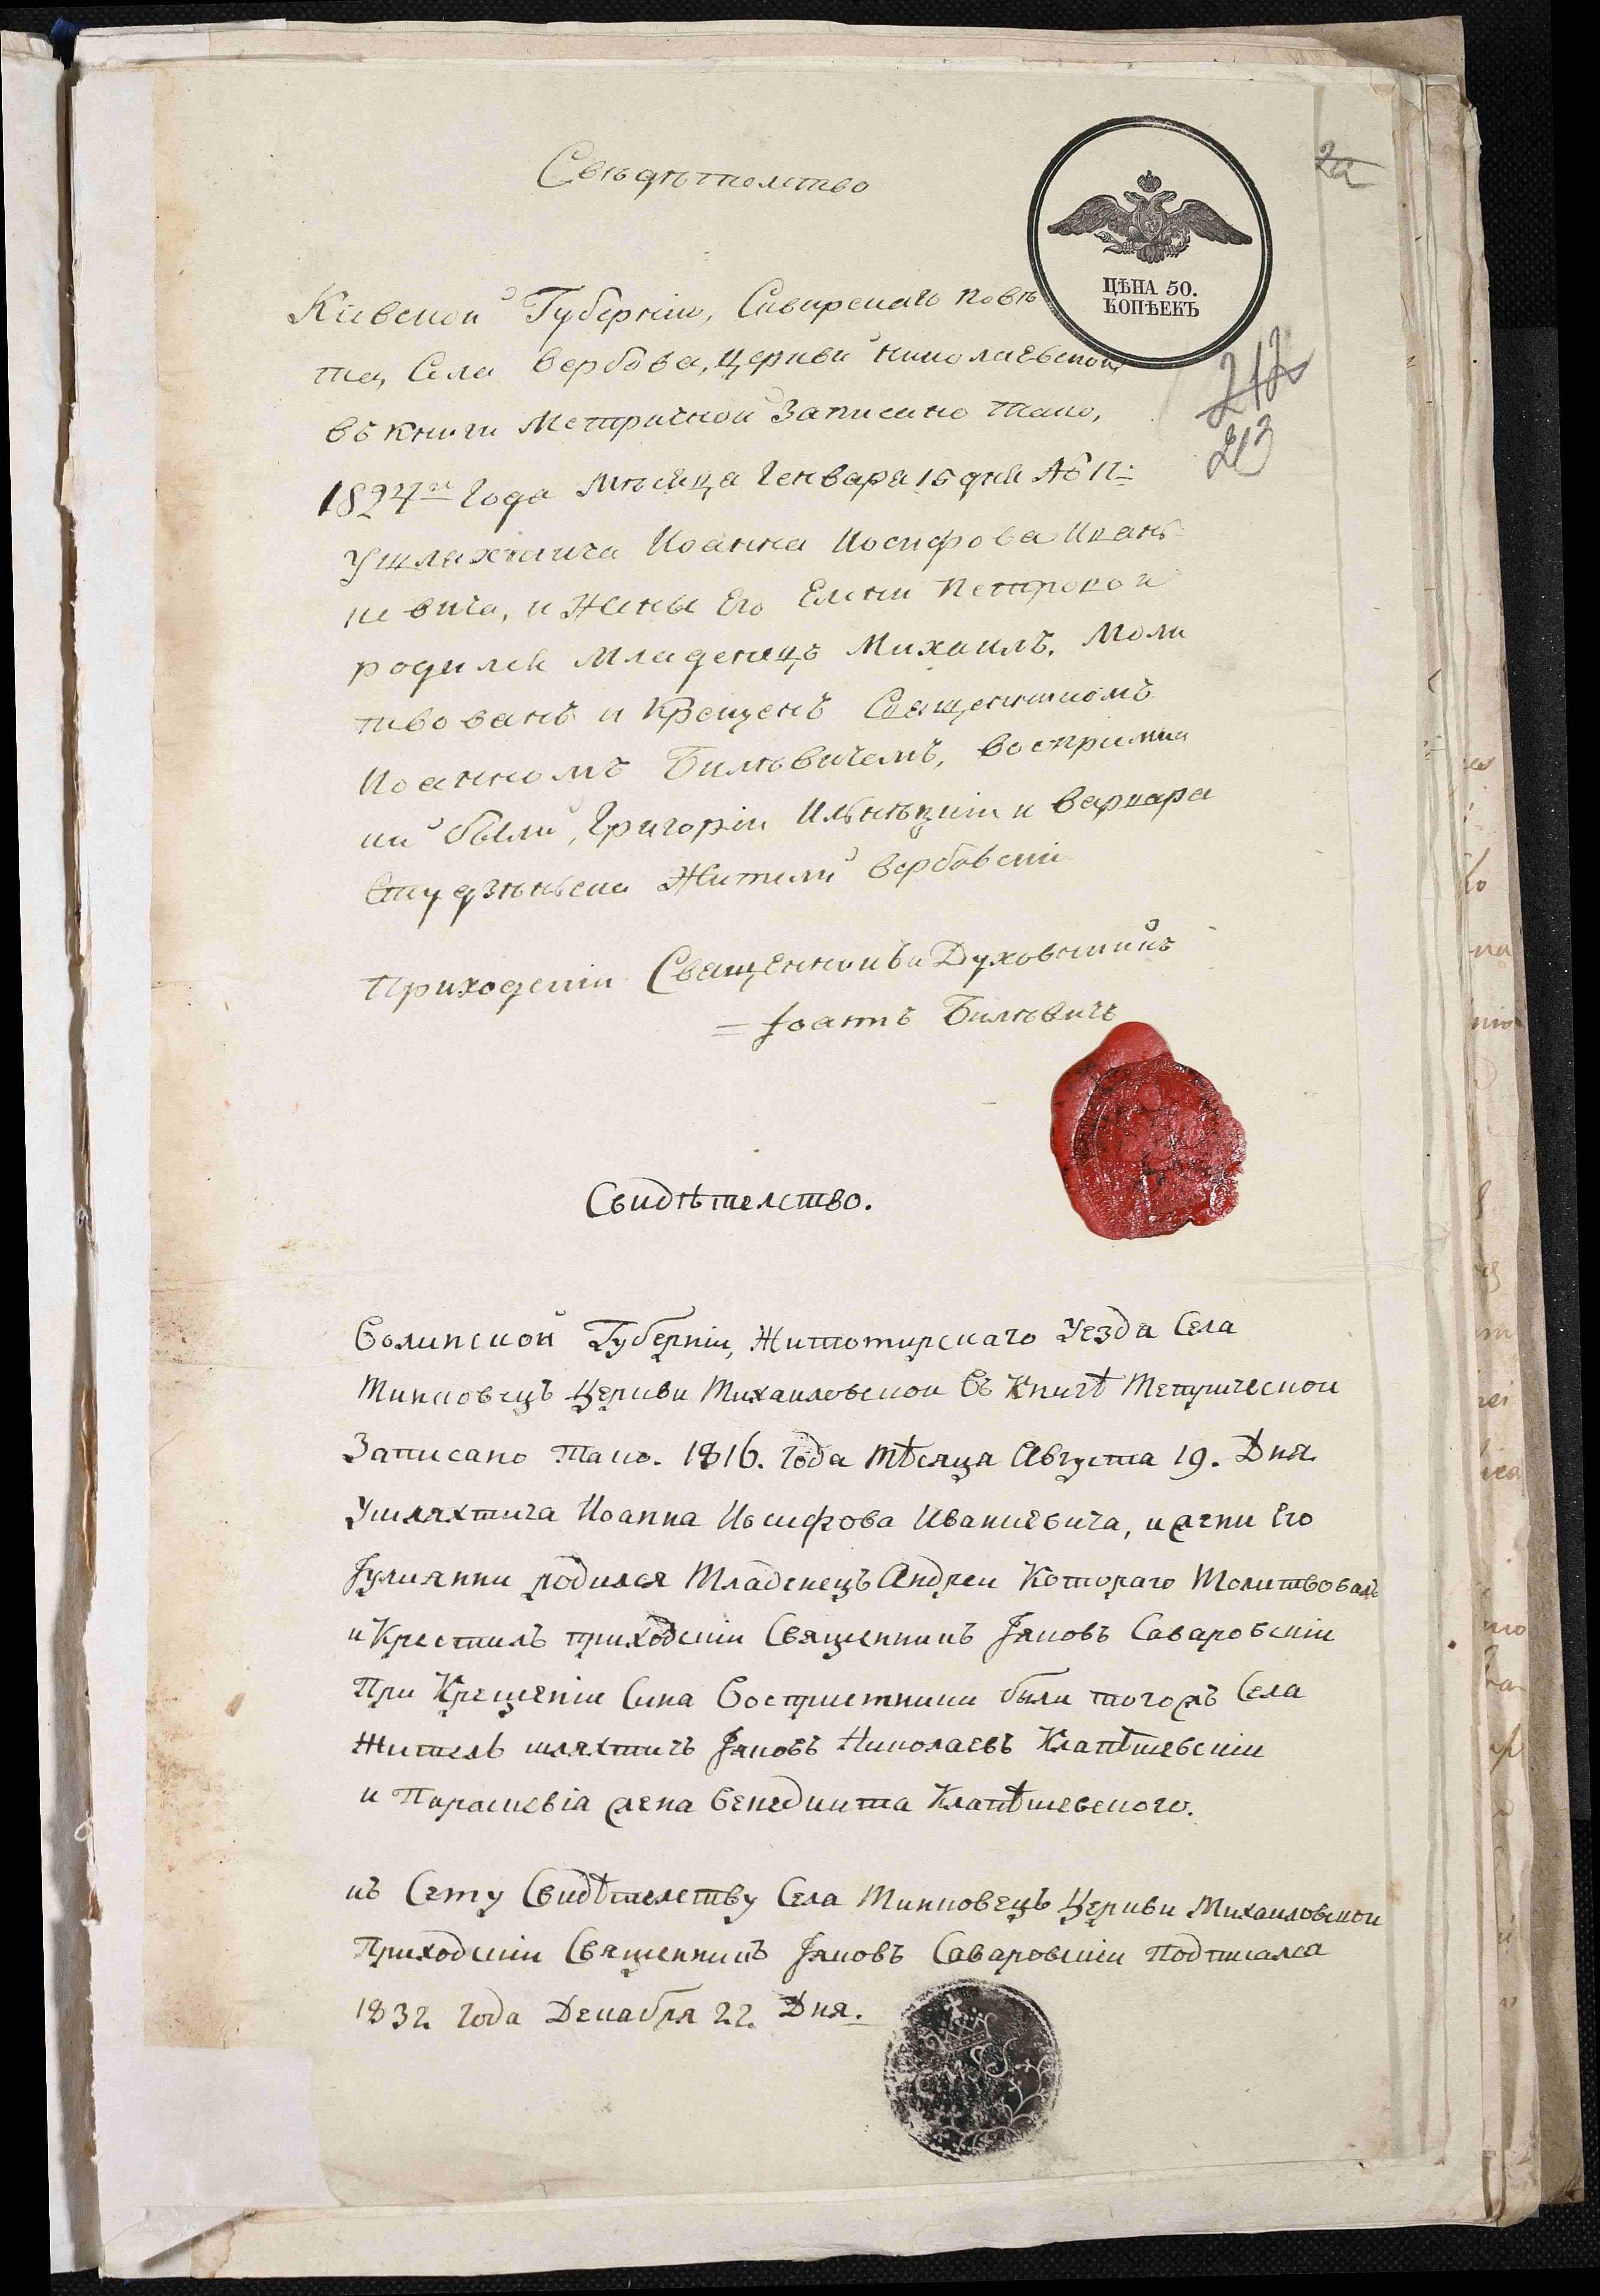 Свѣдѣтелство
ЦѢНА 50.
КОПѢЕКЪ
Кіевской Губерніи, Сквирскаго повѣ
та, Села Вербова, Церкви Николаевской
въ книги Метричной Записано тако,
1824го Года Мѣсяца Генвара 15 дня №
212
213
У шляхтича Иоанна Иосифова Иванъ
кевича, и Жены Его Елены Петровой
родился Младенецъ Михаилъ. Моли
твованъ и Крещенъ Священникомъ
Иоанномъ Билѣвичемъ, воспріемни
ки были, Григорій Ильнѣцкій и Варвара
Жители Вербовскіи
Приходскій Священникъ Духовникъ
Іоаннъ Билѣвичъ
Свидѣтелство.
Волинской Губерніи, Житомирскаго Уезда Села
Минковецъ Церкви Михаиловской Въ Книгѣ Метрической
Записано Тако. 1816. Года Мѣсяца Августа 19. Дня.
У шляхтича Иоанна Иосифова Иванкевича, и жени Его
Іулиянни родился Младенецъ Андреи Котораго Молитвовалъ
и Крестилъ приходскіи Священникъ Іяковъ Саваровскіи
При Крещеніи Сина Восприемники были тогожъ Села
Житель шляхтичъ Іяковъ Николаевъ Клапѣшевскіи
и Параскевіа жена Бенедикта Клапѣшевского.
къ Сему Свидѣтелству Села Минковецъ Церкви Михаиловской
Приходскіи Священникъ Іяковъ Саваровскіи Подписался
1832 Года Декабря 22 Дня.